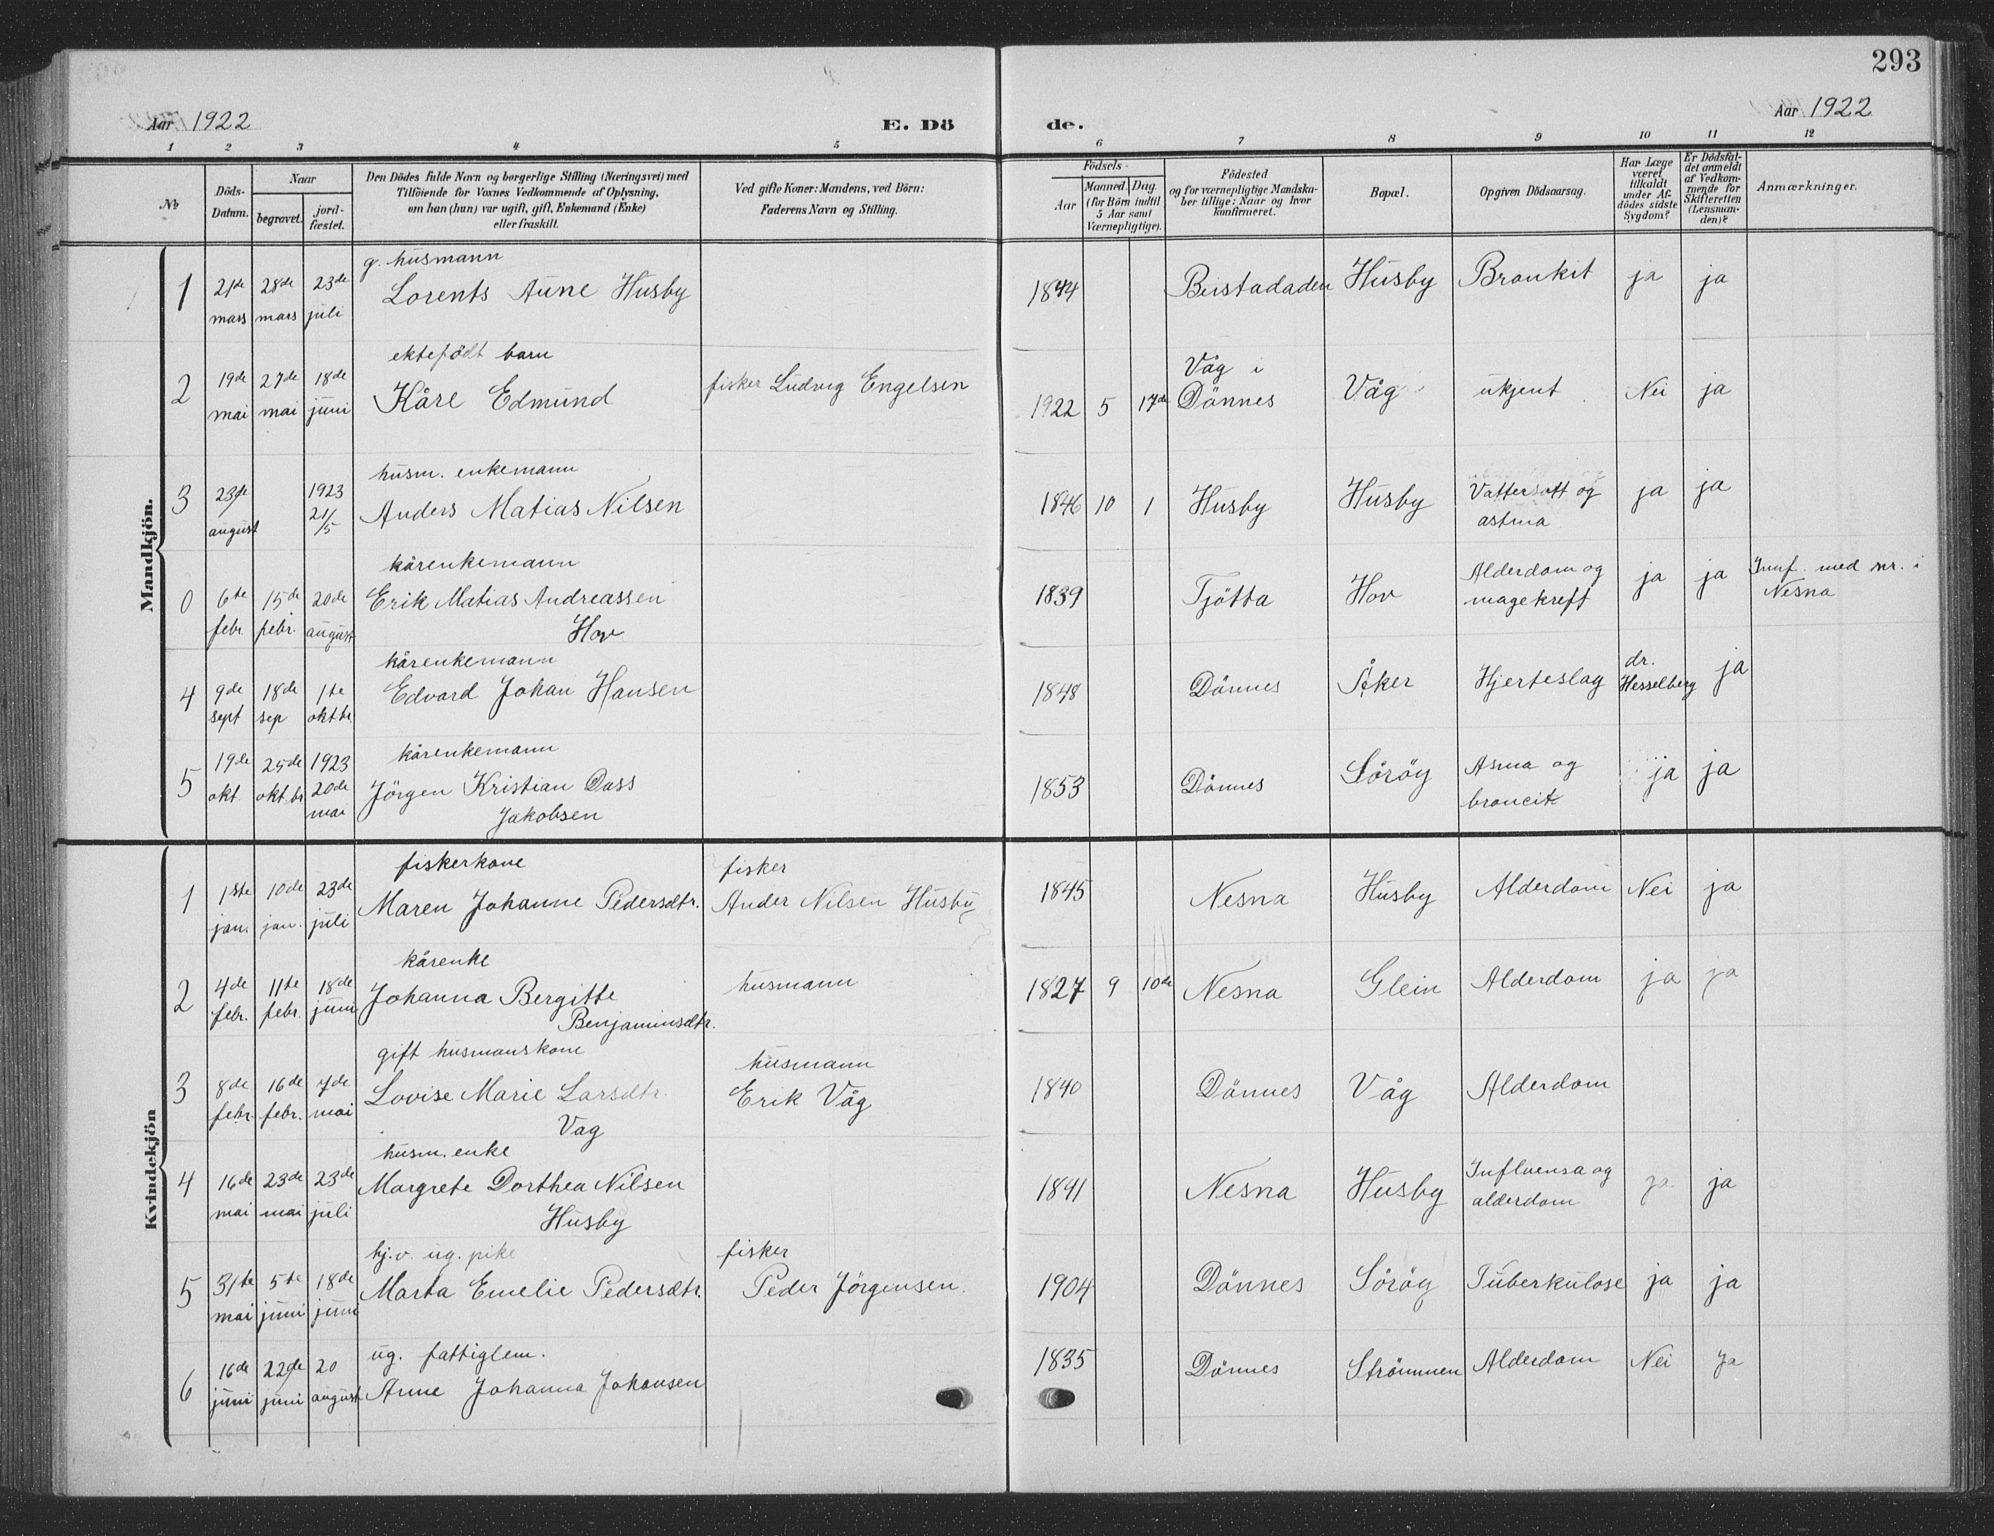 293
Aar 1922
E. Dö
de.
Aar 1922
1 2 3 4 5 6 7 8 9 10 11 12
№
Döds-
Datum.
Naar
begravet.
jord-
fæstet.
Den Dödes fulde Navn og borgerlige Stilling (Næringsvei) med
Tilföiende for Voxnes Vedkommende af Oplysning,
om han (hun) var ugift, gift, Enkemand (Enke)
eller fraskilt.
Ved gifte Koner: Mandens, ved Börn:
Faderens Navn og Stilling.
Födsels-
Aar
Maaned. Dag.
(for Börn indtil
5 Aar samt
Værnepligtige).
Födested
og for værnepligtige Mandska-
ber tillige: Naar og hvor
konfirmeret.
Bopæl.
Opgiven Dödsaarsag.
Har Læge
været
tilkaldt
under Af-
dödes sidste
Sygdom?
Er Dödsfal-
det anmeldt
af Vedkom-
mende for
Skifteretten
(Lensman-
den)?
Anmærkninger.
Mandkjön.
g. husmann
1 21de mars 28de mars 23de juli Lorents Aune Husby 1844 Beistadaden Husby Bronkit ja ja
ektefödt barn
2 19de mai 27de mai 18de juni Kåre Edmund fisker Ludvig Engelsen 1922 5 17de Våg i Dönnes Våg ukjent Nei ja
husm. enkemann
3 23de august 1923 21/5 Anders Matias Nilsen 1846 10 1 Husby Husby Vattersott og astma ja ja
kårenkemann
0 6te febr. 15de febr. 20de august Erik Matias Andreassen Hov 1839 Tjötta Hov Alderdom og magekreft ja ja Innf. med nr. i Nesna
kårenkemann
4 9de sept 18de sep 1te oktbr. Edvard Johan Hansen 1848 Dönnes Åker Hjerteslag dr. Hesselberg ja
kårenkemann
5 19de okt. 25de oktbr 1923 20de mai Jörgen Kristian Dass Jakobsen 1853 Dönnes Söröy Asma og broncit ja ja
Kvindekjön
fiskerkone
1 1ste jan. 10de jan. 23de juli Maren Johanne Pedersdtr. fisker Ander Nilsen Husby 1845 Nesna Husby Alderdom Nei ja
kårenke
2 4de febr. 11te febr. 18de juni Johanna Bergitte Benjaminsdtr. husmann 1827 9 10de Nesna Glein Alderdom ja ja
gift husmanskone
3 8de febr. 16de febr. 7de mai Lovise Marie Larsdtr. Vag husmann Erik Våg 1840 Dönnes Våg Alderdom
husm. enke
4 16de mai 23de mai 23de juli Margrete Dorthea Nilsen Husby 1841 Nesna Husby Influensa og alderdom ja ja
hj.v. ug. pike
5 31te mai 5te juni 18de juni Marta Emelie Pedersdtr. fisker Peder Jörgensen. 1904 Dönnes Söröy Tuberkulose ja ja
ug. fattiglem.
6 16de juni 22de juni 20 august Anne Johanna Johansen 1835 Dönnes Strömmen Alderdom Nei Ja